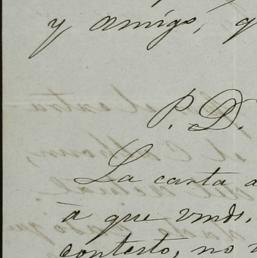 y amigo, q
P.D.
La carta a
à que vmds.
contesto, no